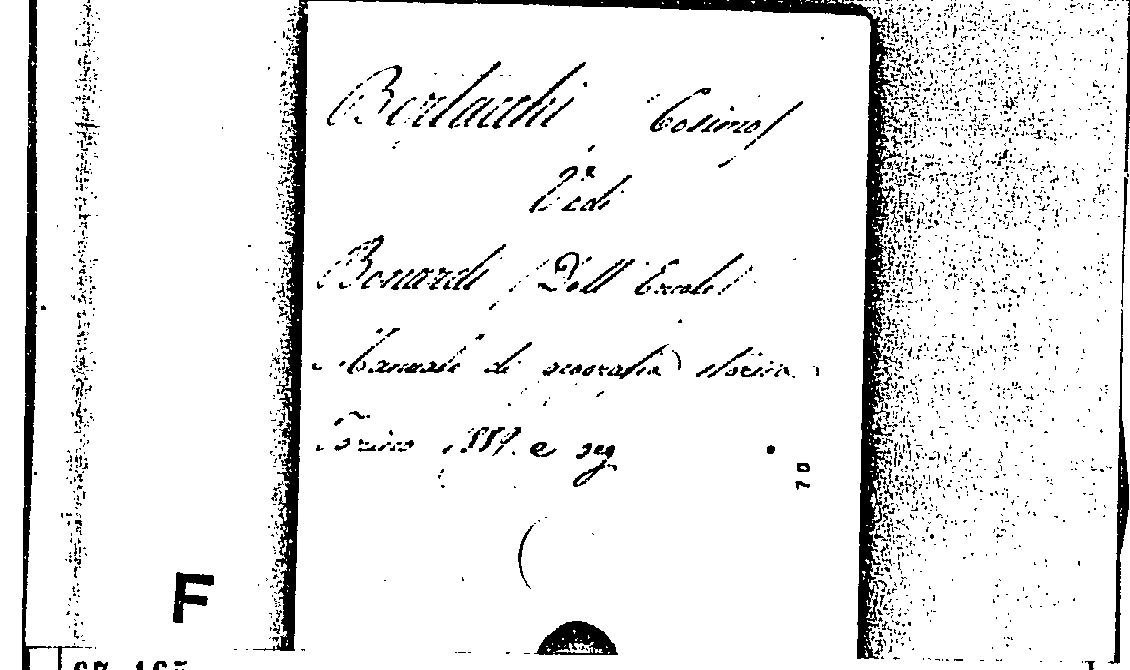 Bertacchi Cosimo/
Vedi
Bonardi /Dell' Ercole/
Manuale di geografia storica.
Torino 1889. e seg
70
F